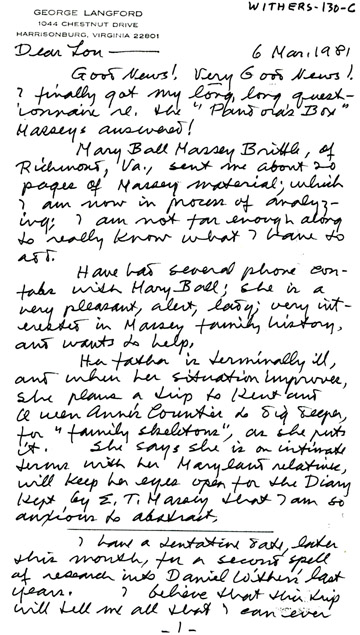 WITHERS-130-C
GEORGE LANGFORD
1044 CHESTNUT DRIVE
HARRISONBURG, VIRGINIA 22801
Dear Lon —
6 Mar. 1981
Good News! Very Good News!
I finally got my long, long quest-
ionnaire re. the "Pandora's Box"
Masseys answered!
Mary Ball Massey Brittle, of
Richmond, Va., sent me about 20
pages of Massey material; which
I am now in process of analyz-
ing; I am not far enough along
to really know what I have to
add.
Have had several phone con-
tabs with Mary Ball; she is a
very pleasant, alert, lady; very int-
erested in Massey family history,
and wants to help.
Her father is terminally ill,
and when her situation improves,
she plans a trip to Kent and
Queen Anne's Counties to dig deeper,
for "family skeletons", as she puts
it. She says she is on intimate
terms with her Maryland relatives,
will keep her eyes open for the Diary
kept by E. T. Massey that I am so
anxious to abstract.
I have a tentative date, later
this month, for a second spell
of research into Daniel Withers' last
years. I believe that this trip
will tell me all that I can ever
- 1 -